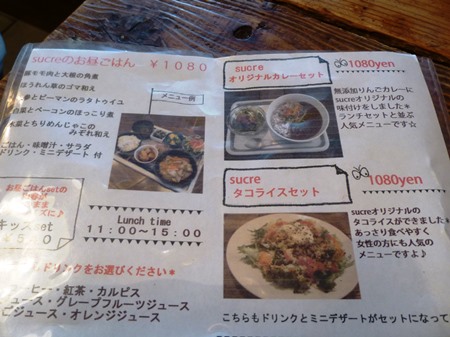 sucreのお昼ごはん ¥1080
豚モモ肉と大根の角煮
ほうれん草のゴマ和え
春とピーマンのラタトゥイユ
白菜とベーコンのほっこり煮
水菜とちりめんじゃこの
みぞれ和え
ごはん・味噌汁・サラダ
ドリンク・ミニデザート 付
メニュー例
お昼ごはんsetの
まま
キッズset
Lunch time
11:00~15:00
ドリンクをお選びください*
ーヒー・紅茶・カルピス
ュース・グレープフルーツジュース
ごジュース・オレンジジュース
sucre
オリジナルカレーセット
1080yen
無添加りんごカレーに
sucreオリジナルの
味付けをしました*
ランチセットと並ぶ
人気メニューです☆
sucre
タコライスセット
1080yen
sucreオリジナルの
タコライスができました*
あっさり食べやすく
女性の方にも人気の
メニューですよ♪
こちらもドリンクとミニデザートがセットになって